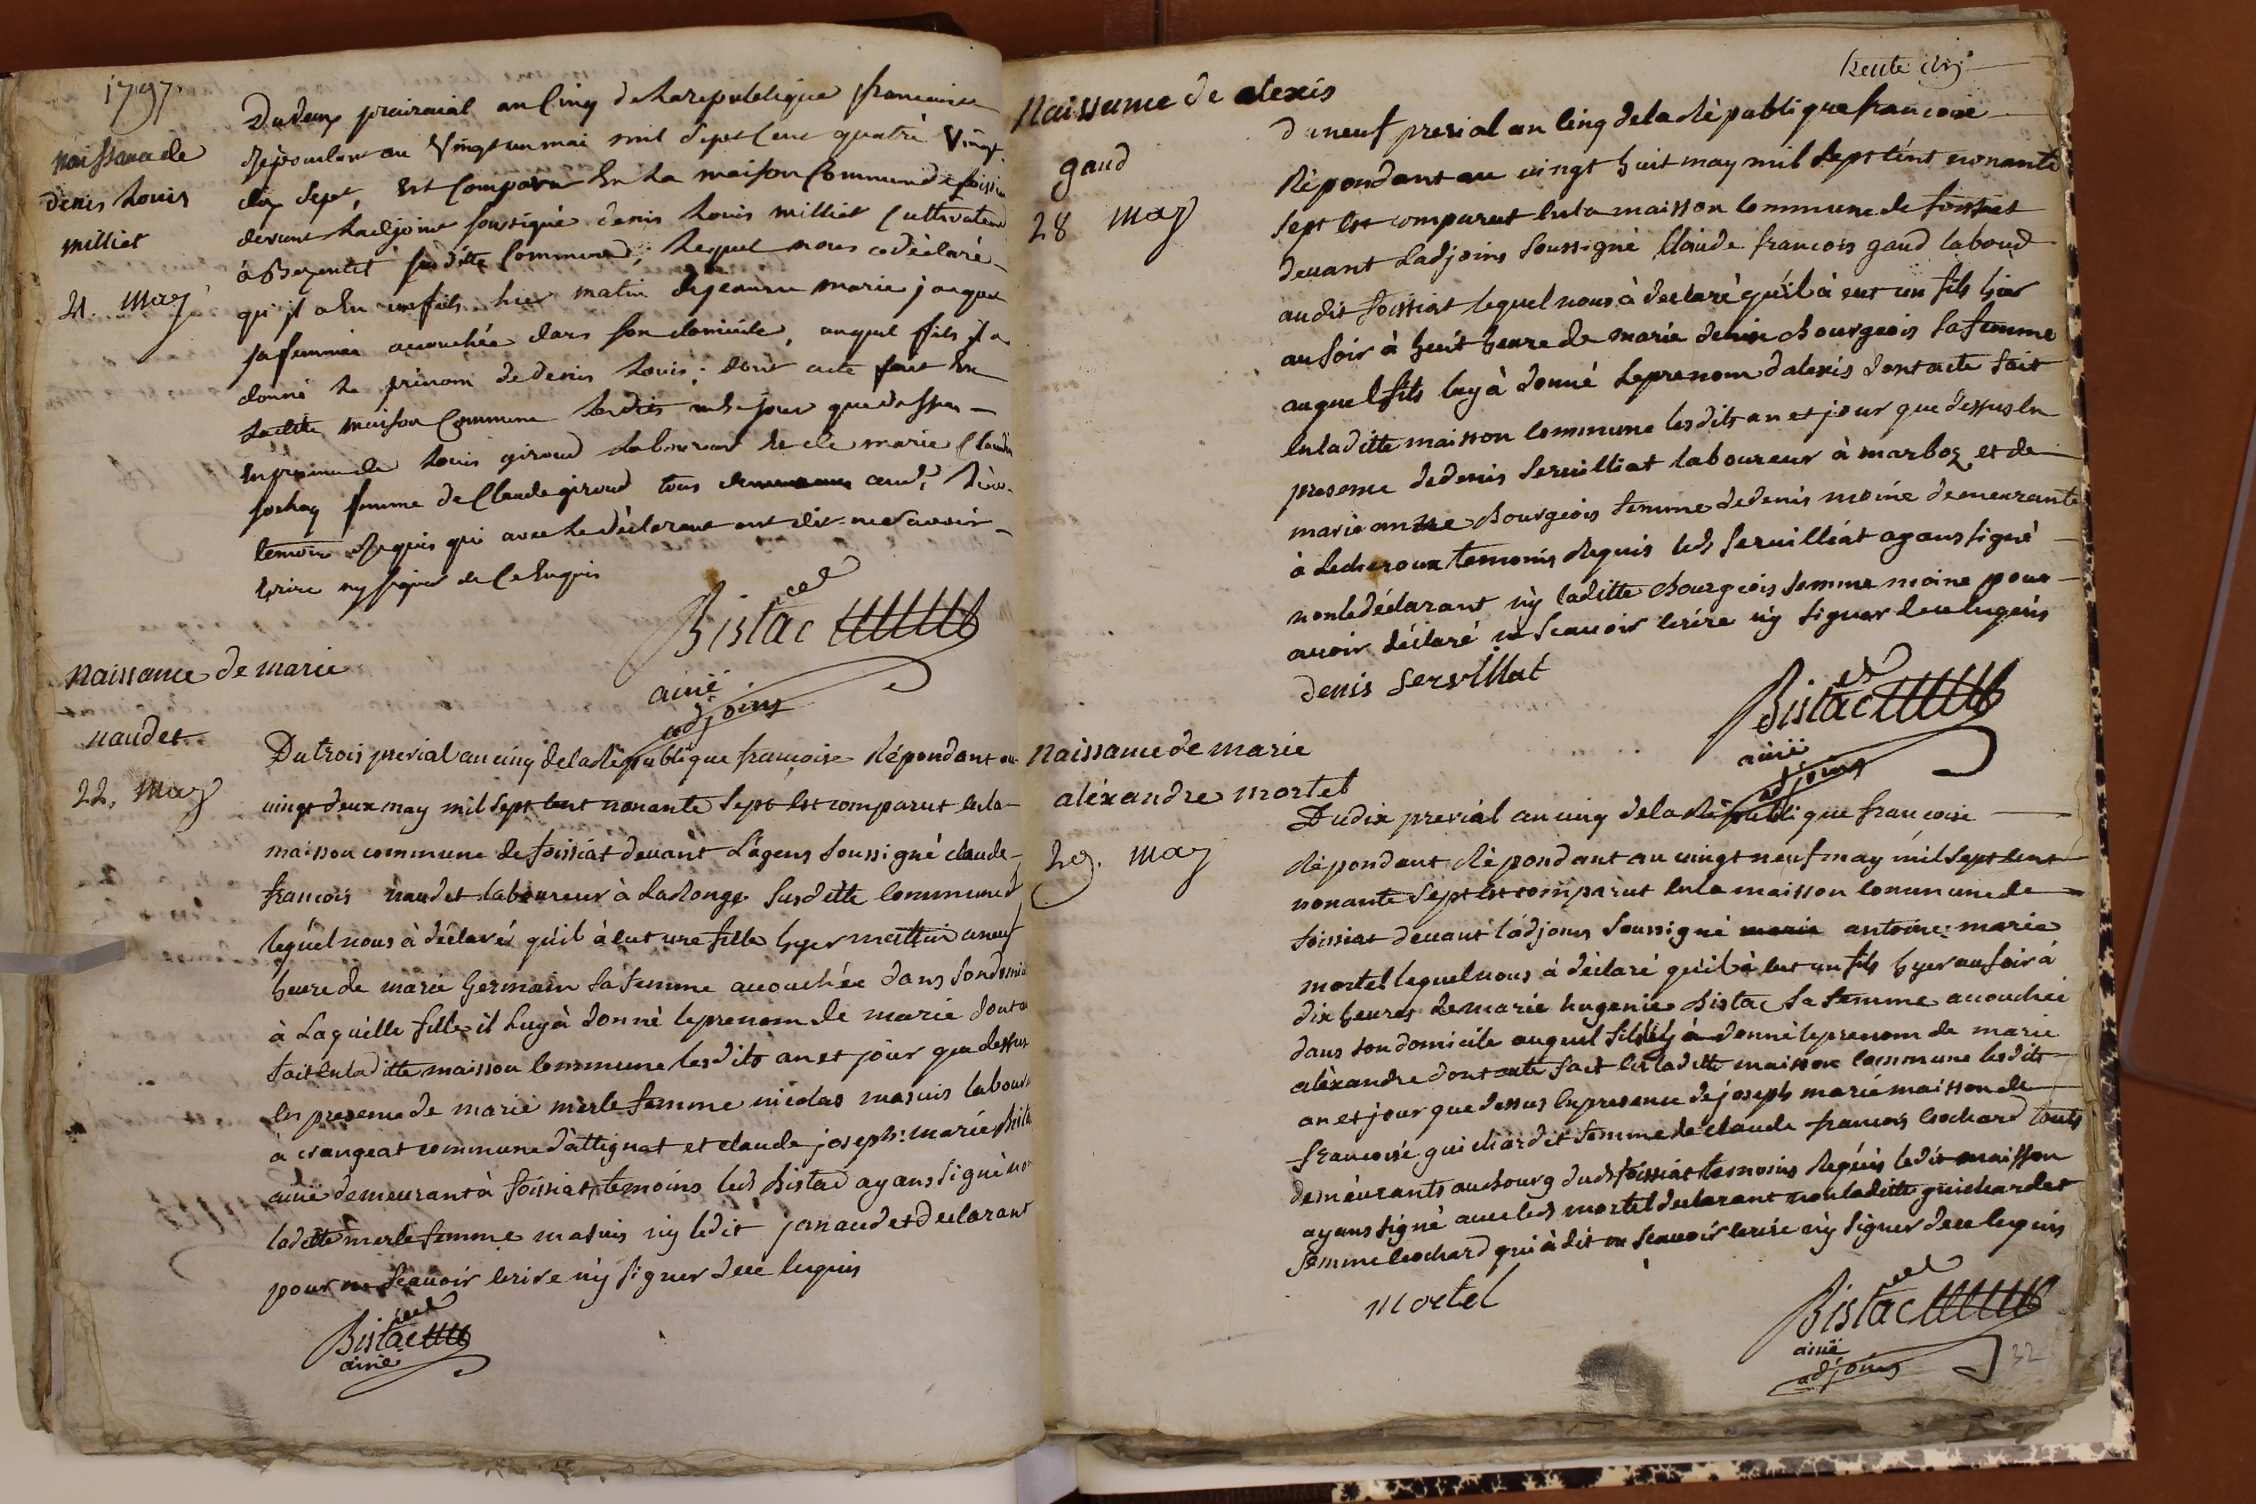 1797
naissance de
denis Louis
milliet
21. may
Du deux prairaial an Cinq de La republique francaise
Répondant au Vingt un mai mil Sept Cent quatre Vingt
dix Sept, Est Comparu En La maison Commune de foissia
devant Ladjoint soussigné denis Louis milliet Cultivateur
à Bezentet susditte Commune, Lequel nous a déclaré
qu'il a Eu un fils hier matin de jeanne marie
sa femme accouchée dans son domicile, auquel fils il a
donné Le prénom de denis Louis; dont acte fait En
Laditte maison Commune Lesdits an & jour que dessus
En presence de Louis giroud Laboureur & de marie Claudi
femme de Claude giroud tous aud.
temoin Requis qui avec Le déclarant ont dit ne savoir
Ecrire ny signer de Ce Enquis
Bistac
ainé
adjoins
naissance de marie
naudet
22, may
Du trois prerial an cinq dela République françoise Répondant au
vingt deux may mil Sept cent nonante Sept Est comparut en la
maisson commune de foissiat devant L'agens soussigné claude
francois naudet laboureur à La Ronge Susditte commune
lequel nous à déclaré qu'il à eut une fille hyer mattin a neuf
heure de marie Germain sa femme accouchée dans son domici
à Laquelle fille il luy à donné le prenom de marie dont a
fait en laditte maisson commune lesdits an et jour que dessus
en presence de marie merle femme nicolas masuis labour
à crangeat commune d'attignat et claude joseph marie Bista
ainé demeurant à foissiat temoins led Bistac ayans signé no
laditte merle femme masuis ny ledit janaudet declarant
pour ne Scavoir lerire ny signer de ce Enquis
Bistac
ainé
trente
Naissance de alexis
gaud
28 may
du neuf prerial an cinq de la République francoise
Répondant au vingt huit may mil sept cent nonante
Sept Est comparut en la maisson commune de foissiat
devant Ladjoins soussigné Claude francois gaud laboud
audit foissiat lequel nous à declaré qu'il à eut un fils hier
au soir à huit heure de marie denise Bourgeois sa femme
auquel fils luy à donné le prenom dalexis dont acte fait
en laditte maisson commune lesdits an et jour que dessus en
presence de denis servilliat laboureur à marboz et de
marie anne Bourgeois femme de denis moine demeurante
à Lecheroux temoins Requis led Servilliat ayans signé
non le déclarant ny laditte Bourgeois femme moine pour
avoir déclaré ne Scavoir lerire ny signer de ce enquis
denis servilliat
Bistac
ainé
adjoins
Naissance de marie
aléxandre mortel
29. may
Du dix prerial an cinq dela République francoise
Répondant Répondant au vingt neuf may mil sept cent
nonante Sept Est comparut en la maisson commune de
foissiat devant l'adjoins soussigné marie antoine marie
mortel lequel nous à déclaré qu'il à eut un fils hyer au soir à
dix heures de marie Eugenie Bistac sa femme accouchée
dans son domicile auquel fils luy à donné le prenom de marie
aléxandre dont acte fait en laditte maisson commune lesdits
an et jour que dessus en presence de joseph marie maisson de
francoise guichardet femme de claude francois cochard touts
demeurants au Bourg dud foissiat temoins Requis ledit maisson
ayans signé avec led mortel declarant non laditte guichardet
femme cochard qui à dit ne scavoir lerire ny signer de ce enquis
mortel
Bistac
ainé
adjoins
32